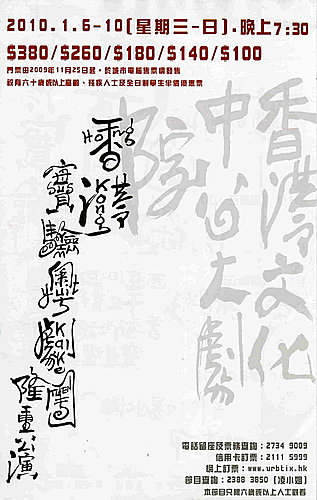 2010.1.6-10(星期三-日).晚上7:30
$380/$260/$180/$140/$100
門票由2009年11月25日起，於城市電腦售票網發售
設有六十歲或以上高齡、殘疾人士及全日制學生半價優惠票
香港文化
中心大劇
院
Hong
香港
Kong
實驗
劇團
隆重公演
電話留座及票務查詢：2734 9009
信用卡訂票：2111 5999
網上訂票：www.urbtix.hk
節目查詢：2388 3850 (凌小姐)
本節目只限六歲或以上人士觀看